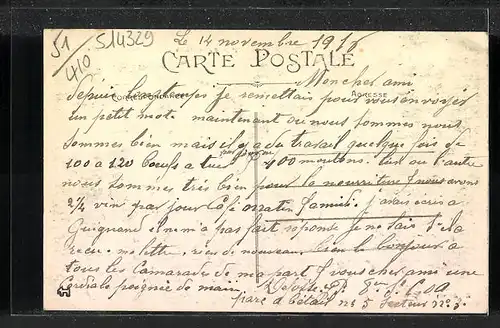 51/410
S14329
Le 14 novembre 1916
CARTE POSTALE
CORRESPONDANCE
ADRESSE
Mon cher ami
depuis longtemps je remettais pour vous envoyer
un petit mot. maintenant ou nous sommes nous
sommes bien mais il y a du travail quelque fois de
100 a 120 boeufs a tuer par jour 400 moutons. l'un ou l'autre
nous sommes très bien pour la nourriture nous avons
2/4 vin par jour Café matin j'avais écris a
Guignard il ne m'a pas fait réponse je ne sais s'il a
recu ma lettre. rien de nouveau. bien le bonjour a
tous les Camarades de ma part vous cher ami une
Cordiale poignée de main.
parc a bétail n° 5 secteur